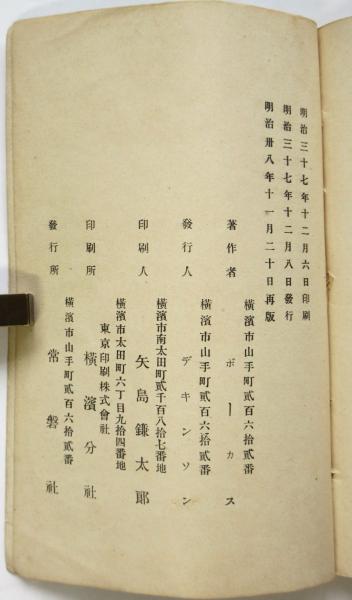 明治三十七年十二月六日印刷
明治三十七年十二月八日發行
明治卅八年十一月二十日再版
橫濱市山手町貳百六拾貳番
著作者 ボーカス
橫濱市山手町貳百六拾貳番
發行人 デキンソン
橫濱市南太田町貳千百八拾七番地
印刷人 矢島鎌太郎
橫濱市太田町六丁目九拾四番地
東京印刷株式會社
印刷所 橫濱分社
橫濱市山手町貳百六拾貳番
發行所 常磐社